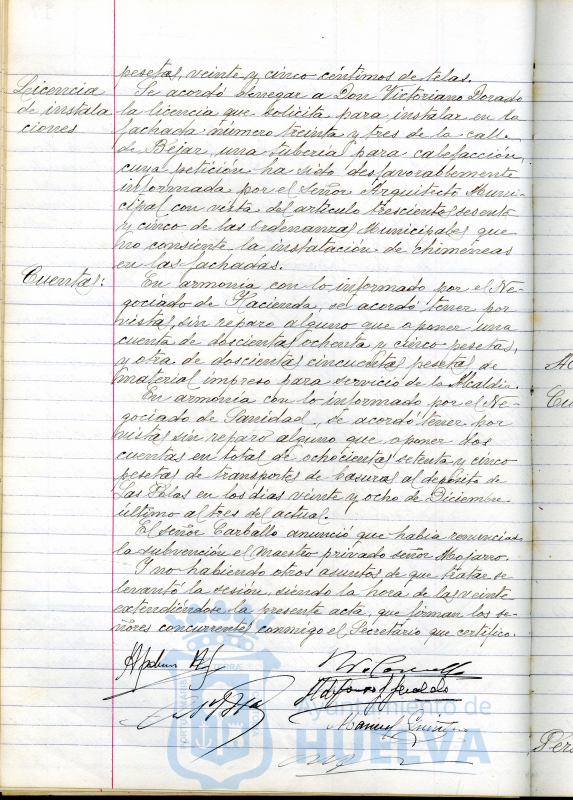 pesetas, veinte y cinco céntimos de telas.
Licencia de instalaciones
Se acordó denegar a Don Victoriano Dorado
la licencia que solicita para instalar en la
fachada número treinta y tres de la calle
de Béjar, una tubería para calefacción,
cuya petición ha sido desfavorablemente
informada por el Señor Arquitecto Muni-
cipal con vista del artículo trescientos sesenta
y cinco de las Ordenanzas Municipales que
no consiente la instalación de chimeneas
en las fachadas.
Cuentas:
En armonía con lo informado por el Ne-
gociado de Hacienda, se acordó tener por
vistas, sin reparo alguno que oponer una
cuenta de doscientas ochenta y cinco pesetas,
y otra de doscientas cincuenta pesetas de
material impreso para servicio de la Alcaldía.
En armonía con lo informado por el Ne-
gociado de Sanidad, se acordó tener por
vistas sin reparo alguno que oponer dos
cuentas en total de ochocientas setenta y cinco
pesetas de transportes de basuras al depósito de
Las Polas en los días veinte y ocho de Diciembre
último al tres del actual.
El señor Carballo anunció que había renunciado
la subvención el Maestro privado señor Mojarro.
Y no habiendo otros asuntos de que tratar se
levantó la sesión, siendo la hora de las veinte
extendiéndose la presente acta, que firman los se-
ñores concurrentes conmigo el Secretario que certifico.
Manuel
Ayuntamiento de
HUELVA